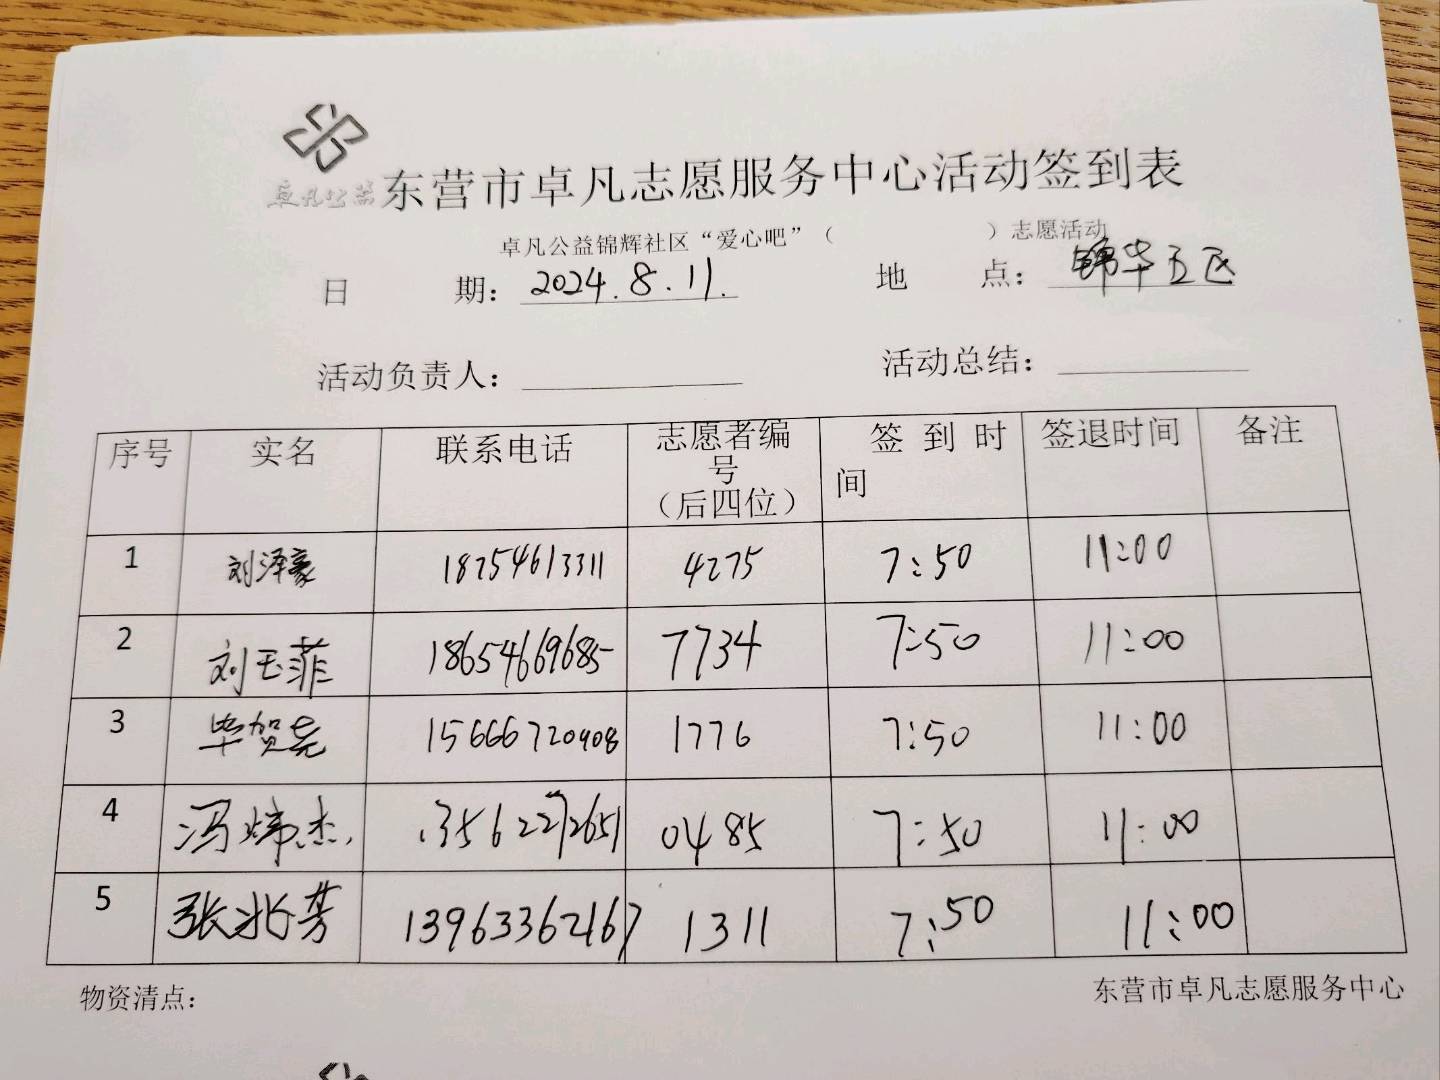 卓凡公益
东营市卓凡志愿服务中心活动签到表
卓凡公益锦辉社区“爱心吧”（ ）志愿活动
日 期： 2024.8.11. 地 点： 锦华五区
活动负责人： 活动总结：
序号 实名 联系电话 志愿者编号（后四位） 签到时间 签退时间 备注
1 刘泽豪 18254613311 4275 7:50 11:00
2 刘玉菲 18654669685 7734 7:50 11:00
3 毕贺尧 15666720908 1776 7:50 11:00
4 冯炜杰 13562272651 0485 7:50 11:00
5 张兆芳 13963362167 1311 7:50 11:00
物资清点： 东营市卓凡志愿服务中心